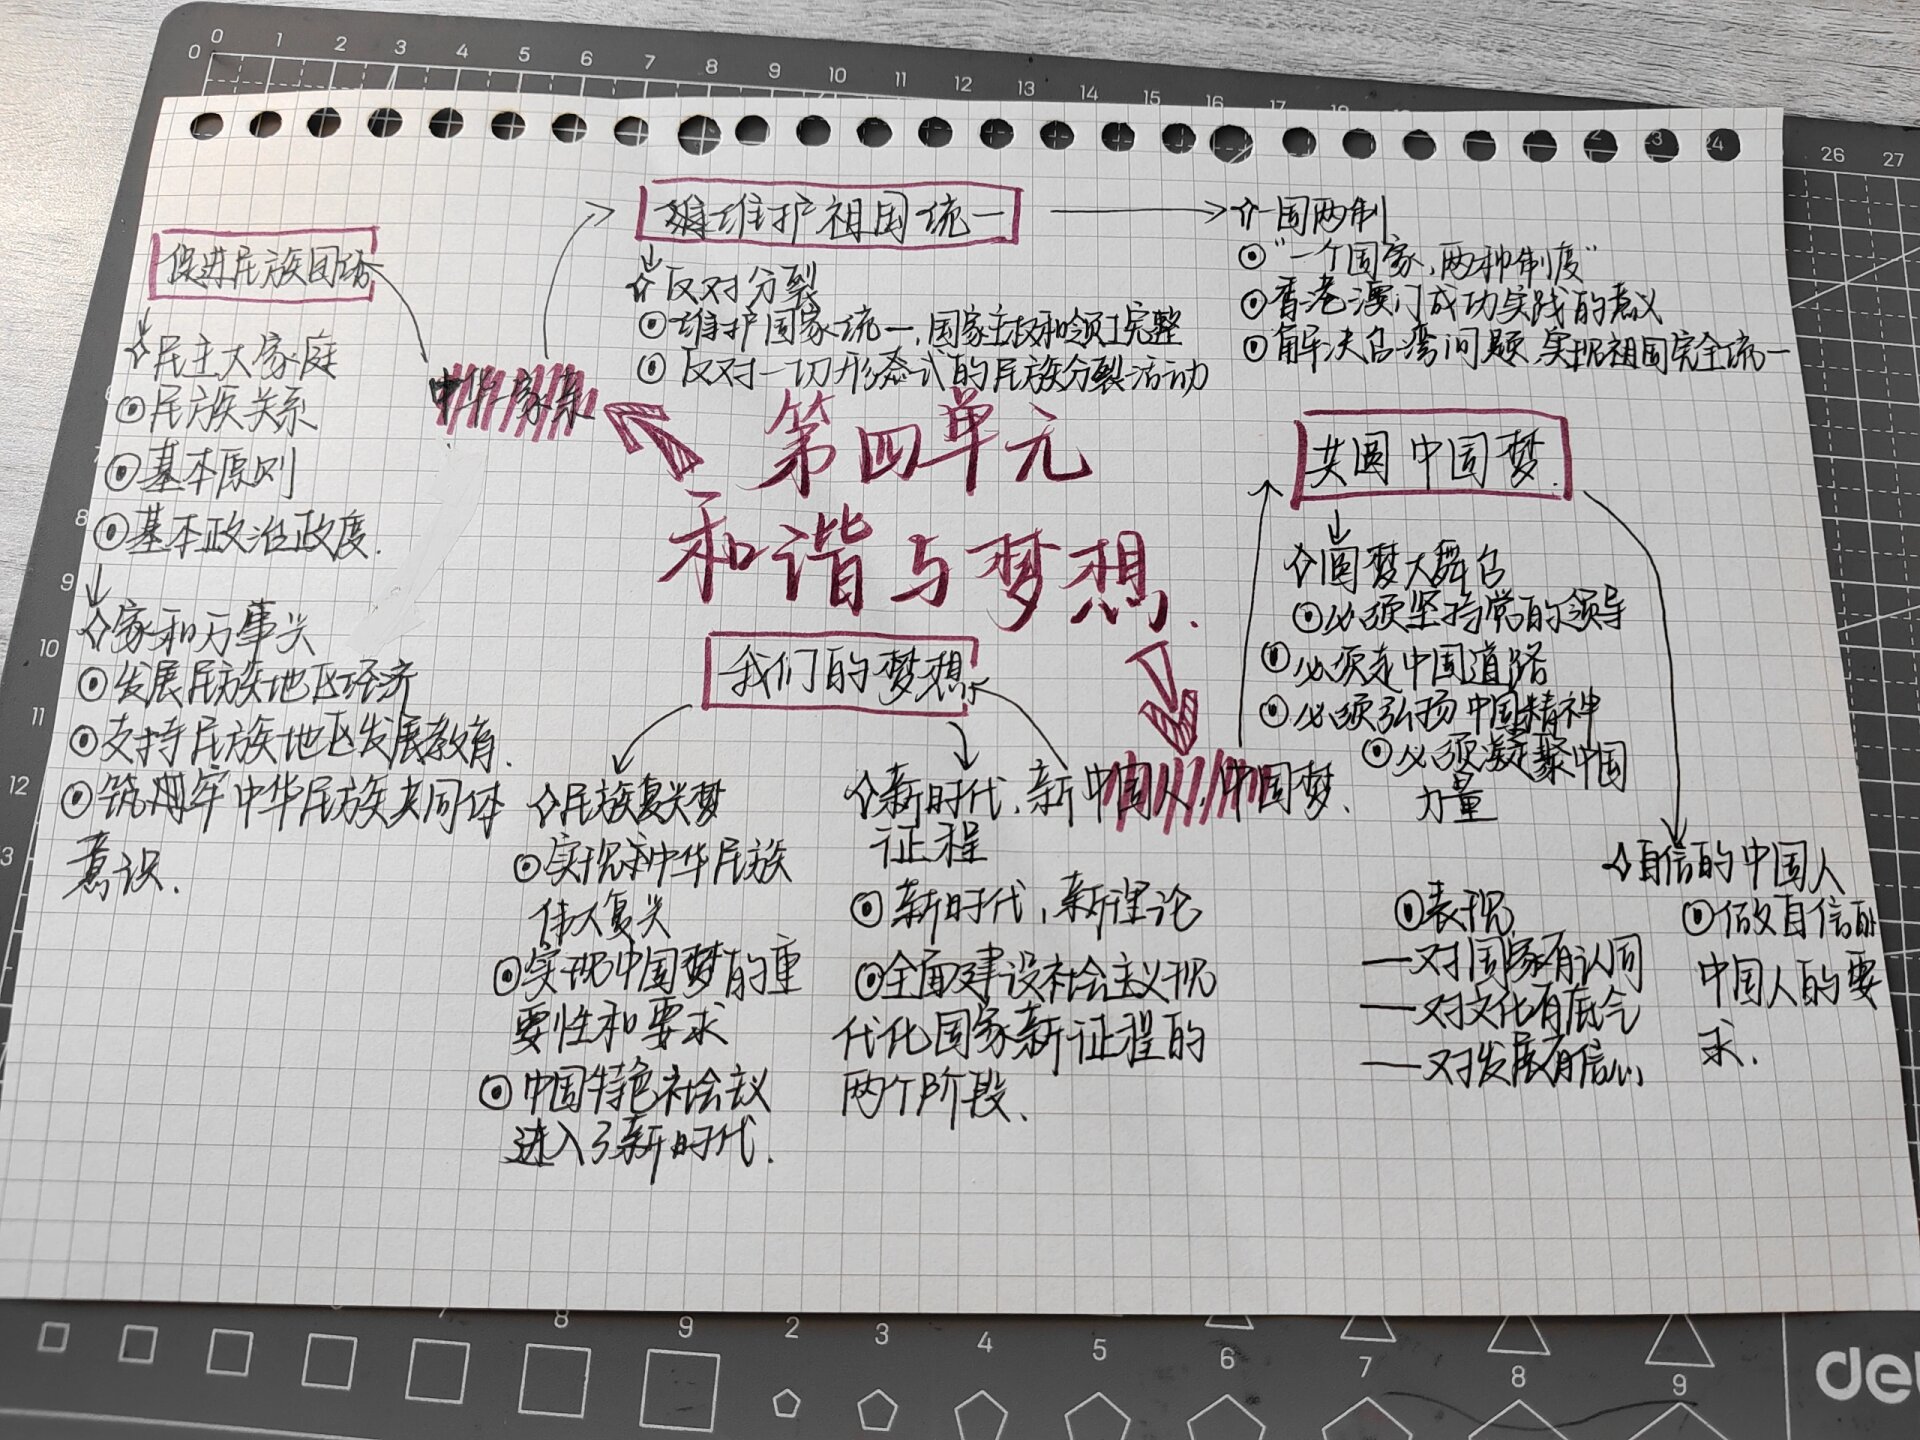 第四单元
和谐与梦想.
中华一家亲
促进民族团结
民主大家庭
民族关系
基本原则
基本政治政度.
家和万事兴
发展民族地区经济
支持民族地区发展教育.
筑牢中华民族共同体
意识.
维护祖国统一
反对分裂
维护国家统一,国家主权和领土完整
反对一切形式的民族分裂活动
一国两制
“一个国家,两种制度”
香港澳门成功实践的意义
解决台湾问题,实现祖国完全统一
中国人,中国梦.
我们的梦想
民族复兴梦
实现中华民族
伟大复兴
实现中国梦的重
要性和要求
中国特色社会主义
进入了新时代.
新时代,新
征程
新时代,新理论
全面建设社会主义现
代化国家新征程的
两个阶段.
共圆中国梦.
圆梦大舞台
必须坚持党的领导
必须走中国道路
必须弘扬中国精神
必须凝聚中国
力量
自信的中国人
表现
一对国家有认同
一对文化有底气
一对发展有信心
做自信的
中国人的要
求.
0 1 2 3 4 5 6 7 8 9 10 11 12 13 14 15 16 17
26 27
0
8
9
10
11
12
3
7 8 9 2 3 4 5 6 7 8 9